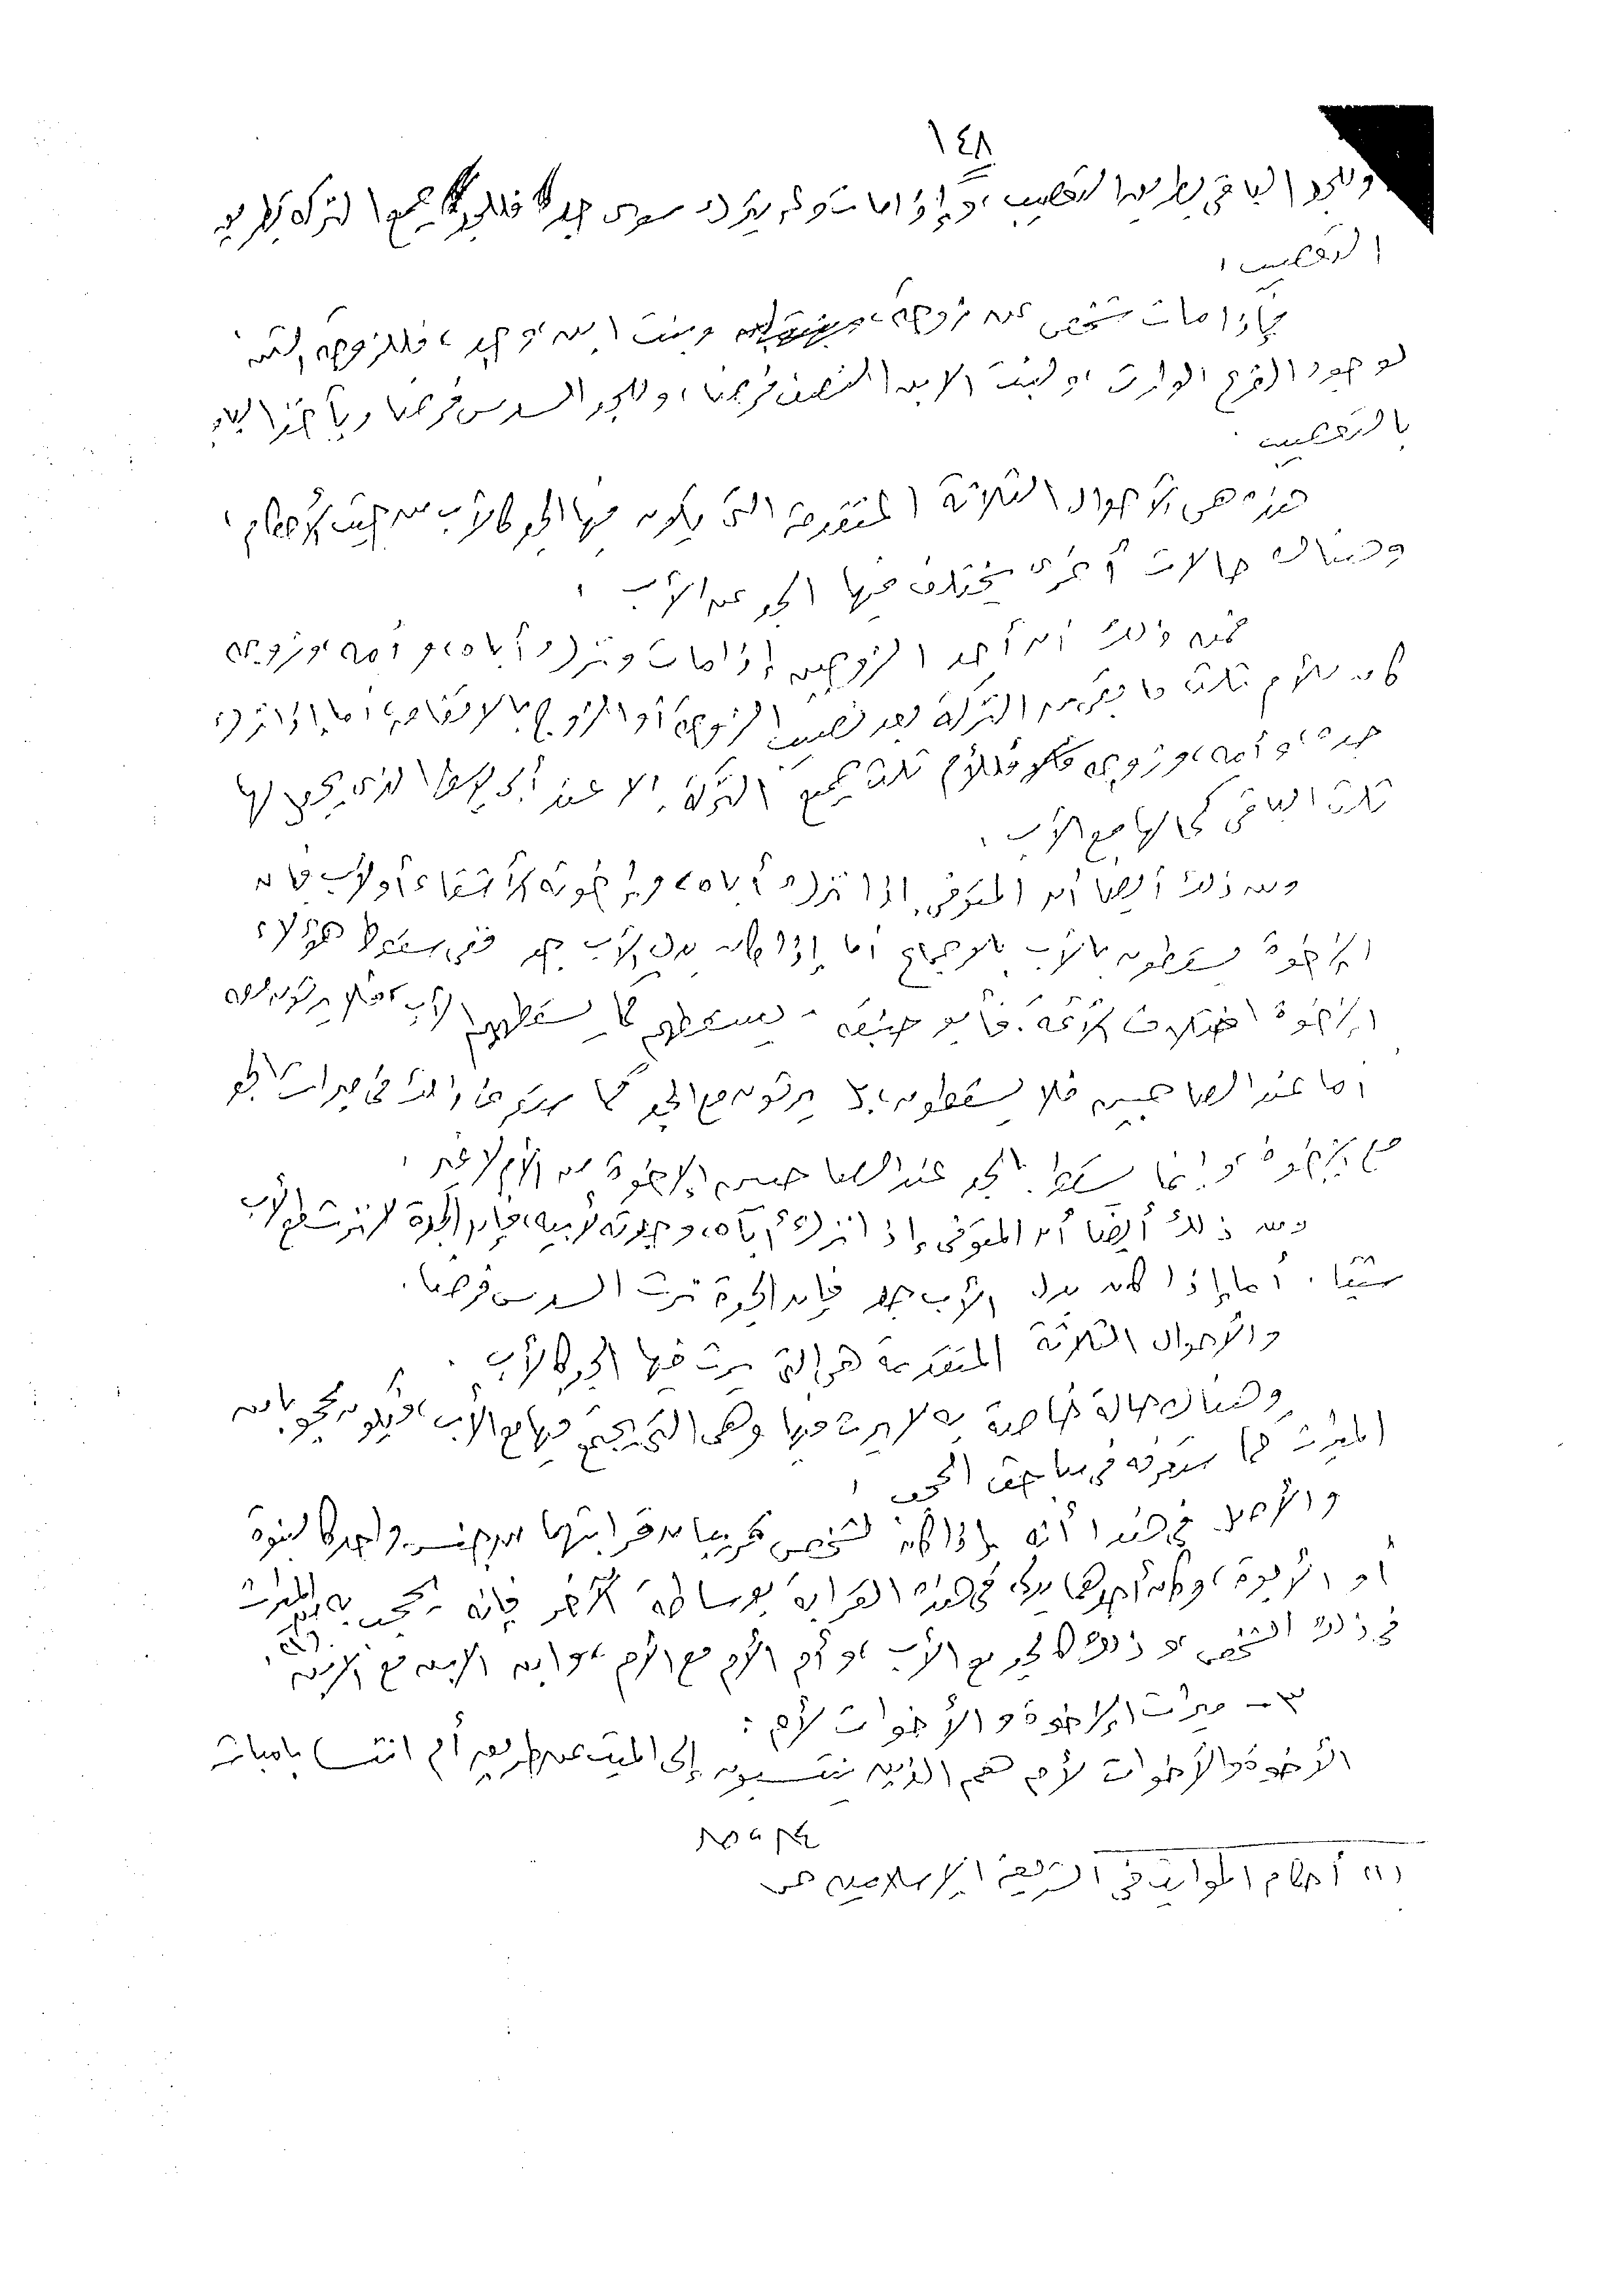 ١٤٨
وللجد الباقي بطريق التعصيب، وإذا مات ولم يترك سوى جد فللجد جميع التركة بطريق
التعصيب.
فإذا مات شخص عن زوجة، وبنت ابن، وجد، فللزوجة الثمن
لوجود الفرع الوارث، ولبنت الابن النصف فرضا، وللجد السدس فرضا ويأخذ الباقي
بالتعصيب.
هذه هي الأحوال الثلاثة المتقدمة التي يكون فيها الجد كالأب من حيث الأحكام،
وهناك حالات أخرى يختلف فيها الجد عن الأب.
فمن ذلك أن أحد الزوجين إذا مات وترك أباه، وأمه، وزوجه
كان للأم ثلث ما بقي من التركة بعد نصيب الزوجة أو الزوج بالاتفاق، أما إذا ترك
جده، وأمه، وزوجه فللأم ثلث جميع التركة، إلا عند أبي يوسف الذي يجعل لها
ثلث الباقي كما لها مع الأب.
ومن ذلك أيضا أن المتوفى إذا ترك أباه، وإخوته الأشقاء أو لأب فإن
الإخوة يسقطون بالأب بالإجماع أما إذا كان بدل الأب جد ففي سقوط هؤلاء
الإخوة اختلاف الأئمة. فأبو حنيفة - يسقطهم كما يسقطهم الأب، فلا يرثون معه
أما عند الصاحبين فلا يسقطون، بل يرثون مع الجد كما ستعرف ذلك في ميراث الجد
مع الإخوة، وإنما يسقط بالجد عند الصاحبين الإخوة من الأم لا غير.
ومن ذلك أيضا أن المتوفى إذا ترك أباه، وجدته لأبيه، فإن الجدة لا ترث مع الأب
شيئا. أما إذا كان بدل الأب جد فإن الجدة ترث السدس فرضا.
والأحوال الثلاثة المتقدمة هي التي يرث فيها الجد كالأب.
وهناك حالة خاصة به لا يرث فيها وهي التي يجتمع فيها مع الأب، فيكون محجوبا من
الميراث كما ستعرفه في مباحث الحجب.
والأصل في هذا أنه إذا كان لشخص قريبان قرابتهما من جنس واحد كالبنوة
أو الأبوة، وكان أحدهما يدلي في هذه القرابة بوساطة الآخر فإنه يحجب به من الميراث
في ذلك الشخص، وذلك كالجد مع الأب، وأم الأم مع الأم، وابن الابن مع الابن (١).
٣ - ميراث الإخوة والأخوات لأم:
الأخوة والأخوات لأم هم الذين ينتسبون إلى الميت عن طريق أم انتسابا مباشرا
(١) أحكام المواريث في الشريعة الإسلامية ص